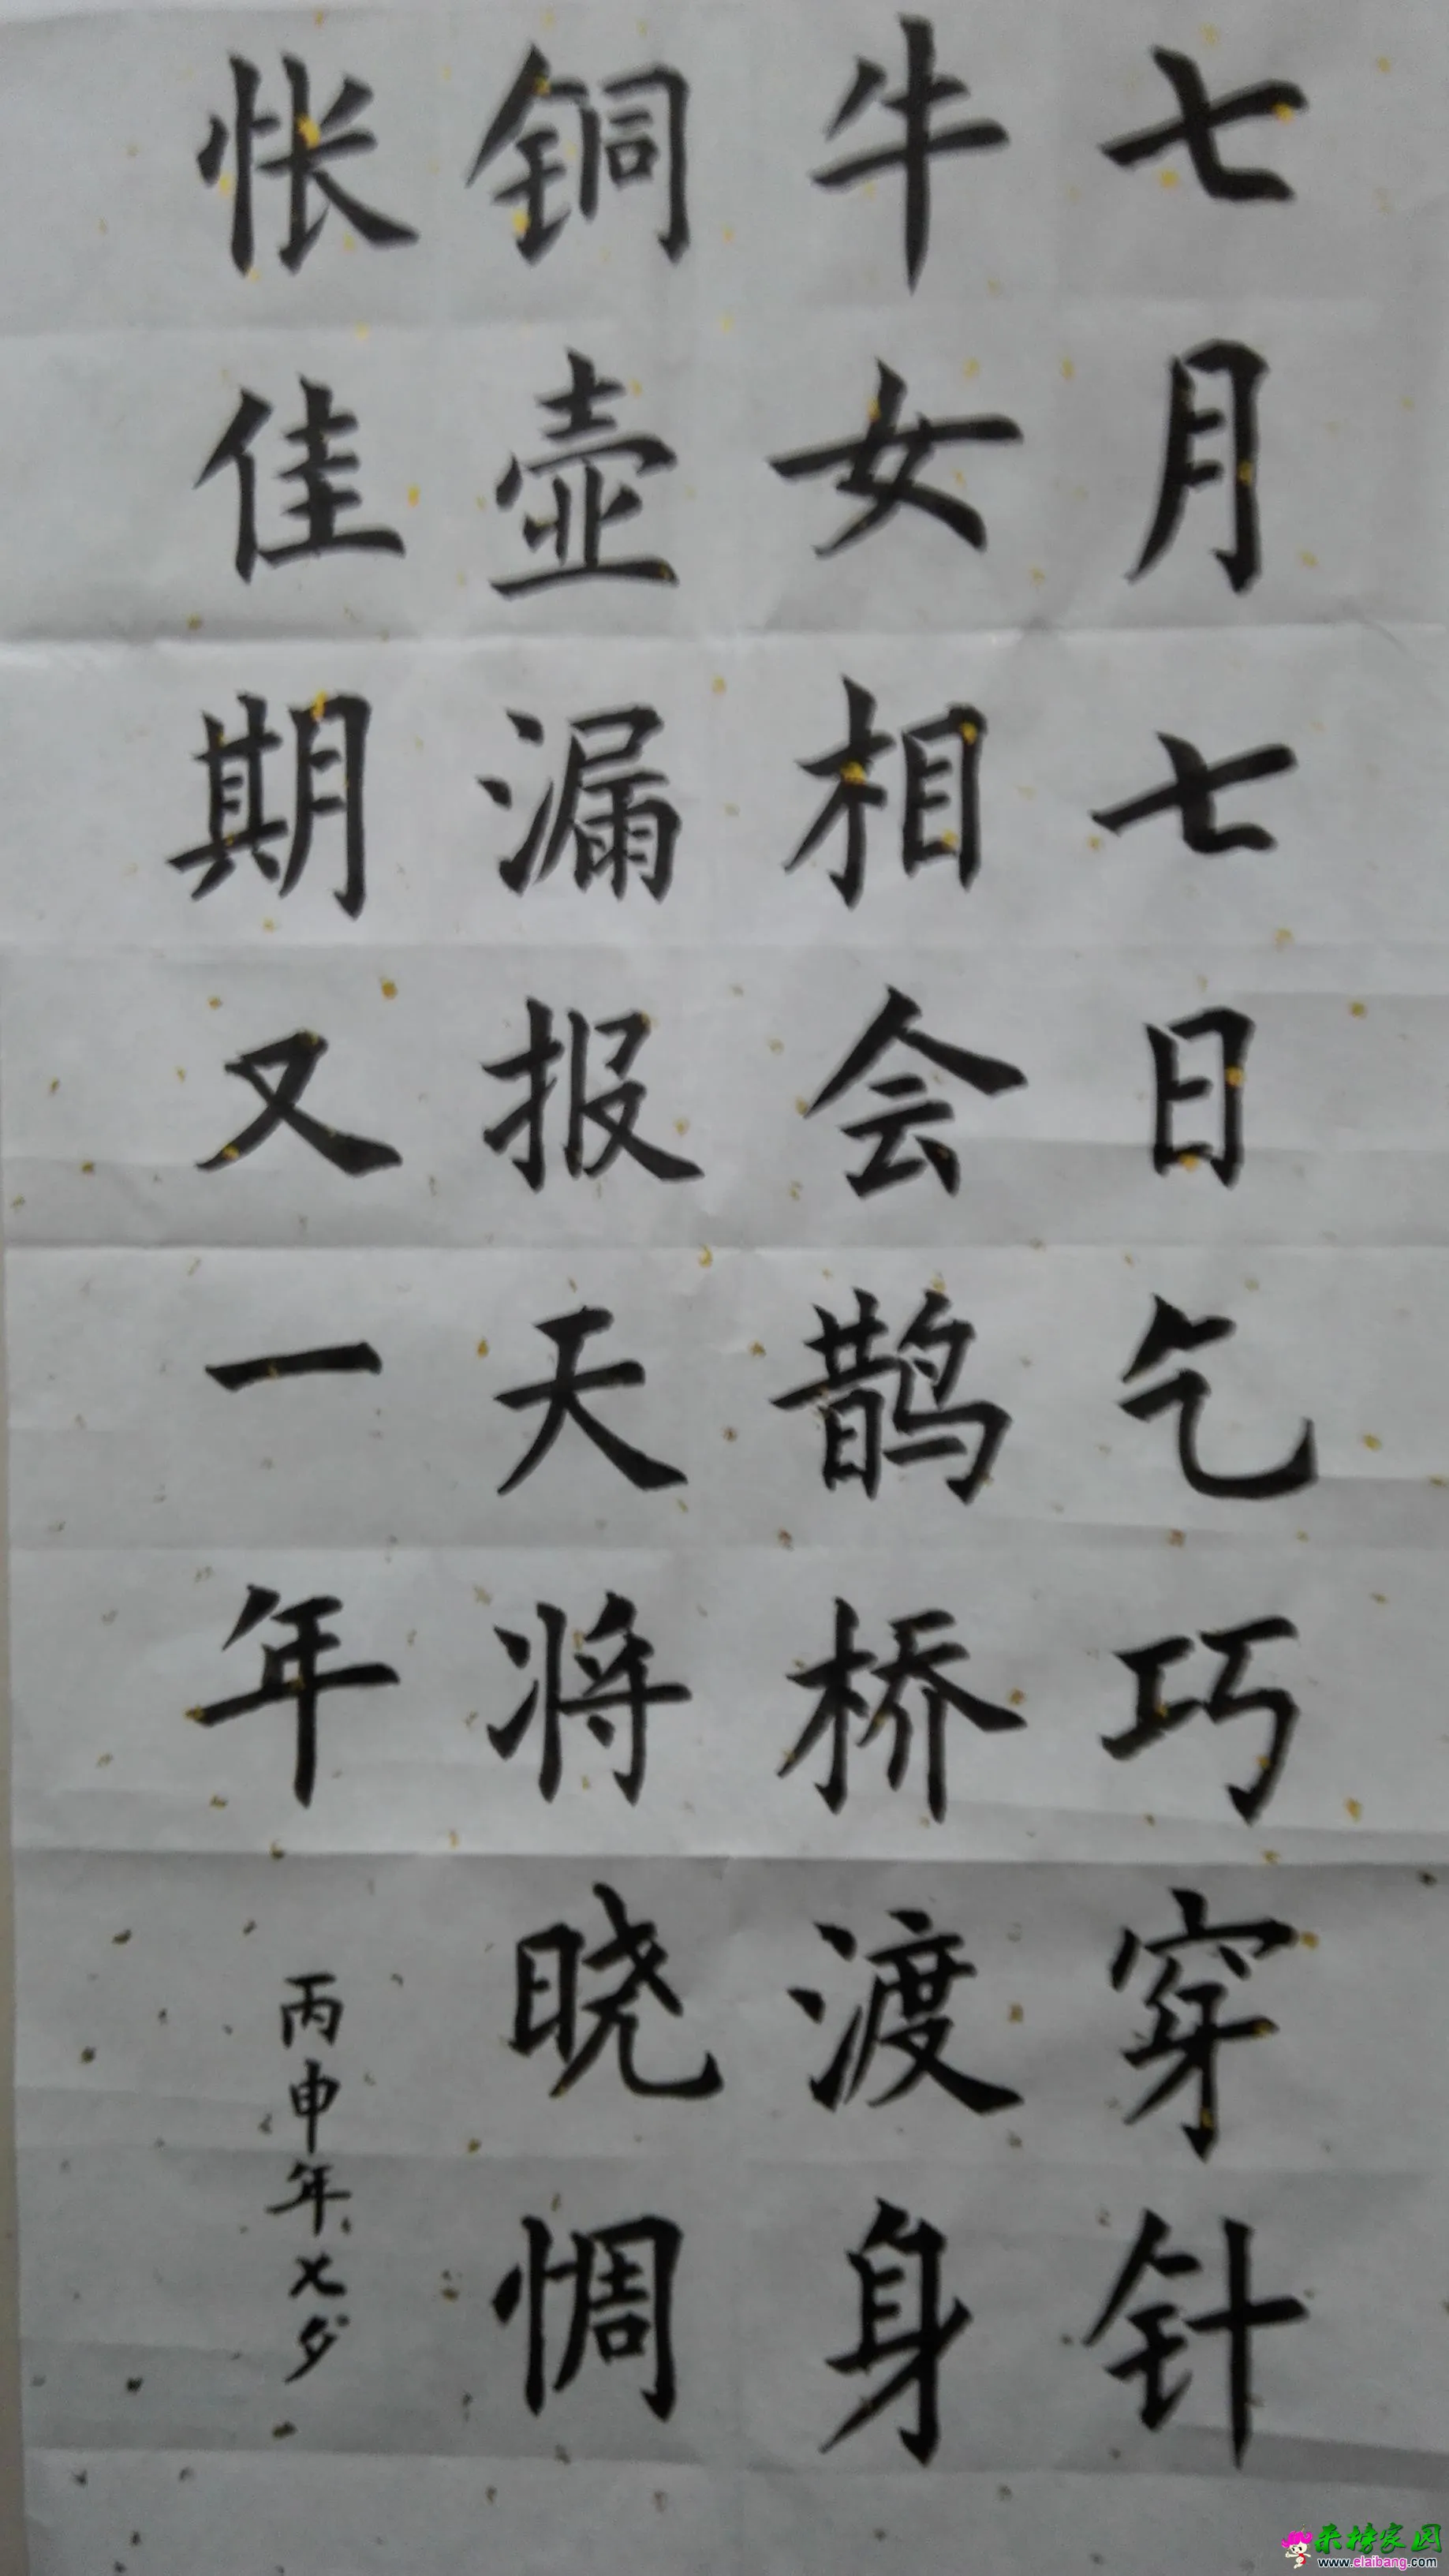 七月七日乞巧穿针
牛女相会鹊桥渡身
铜壶漏报天将晓惆
怅佳期又一年
丙申年七夕
来榜家园
www.elaibang.com